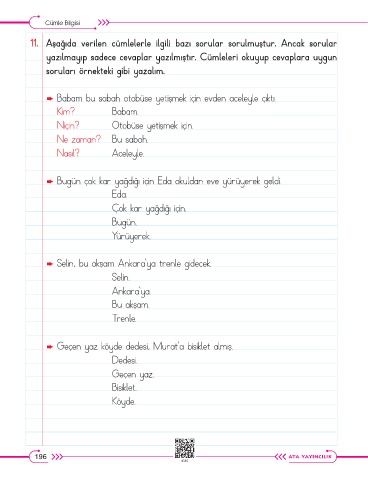 Cümle Bilgisi
11. Aşağıda verilen cümlelerle ilgili bazı sorular sorulmuştur. Ancak sorular
yazılmayıp sadece cevaplar yazılmıştır. Cümleleri okuyup cevaplara uygun
soruları örnekteki gibi yazalım.
Babam bu sabah otobüse yetişmek için evden aceleyle çıktı.
Kim? Babam.
Niçin? Otobüse yetişmek için.
Ne zaman? Bu sabah.
Nasıl? Aceleyle.
Bugün çok kar yağdığı için Eda okuldan eve yürüyerek geldi.
Eda.
Çok kar yağdığı için.
Bugün.
Yürüyerek.
Selin, bu akşam Ankara'ya trenle gidecek.
Selin.
Ankara'ya.
Bu akşam.
Trenle.
Geçen yaz köyde dedesi, Murat'a bisiklet almış.
Dedesi.
Geçen yaz.
Bisiklet.
Köyde.
196
ATA YAYINCILIK